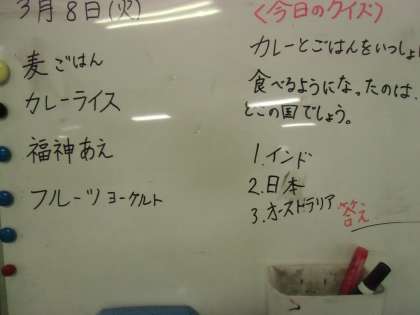 3月8日(火)
麦ごはん
カレーライス
福神あえ
フルーツヨーグルト
<今日のクイズ>
カレーとごはんをいっしょに
食べるようになったのは、
どこの国でしょう。
1.インド
2.日本
3.オーストラリア
答え